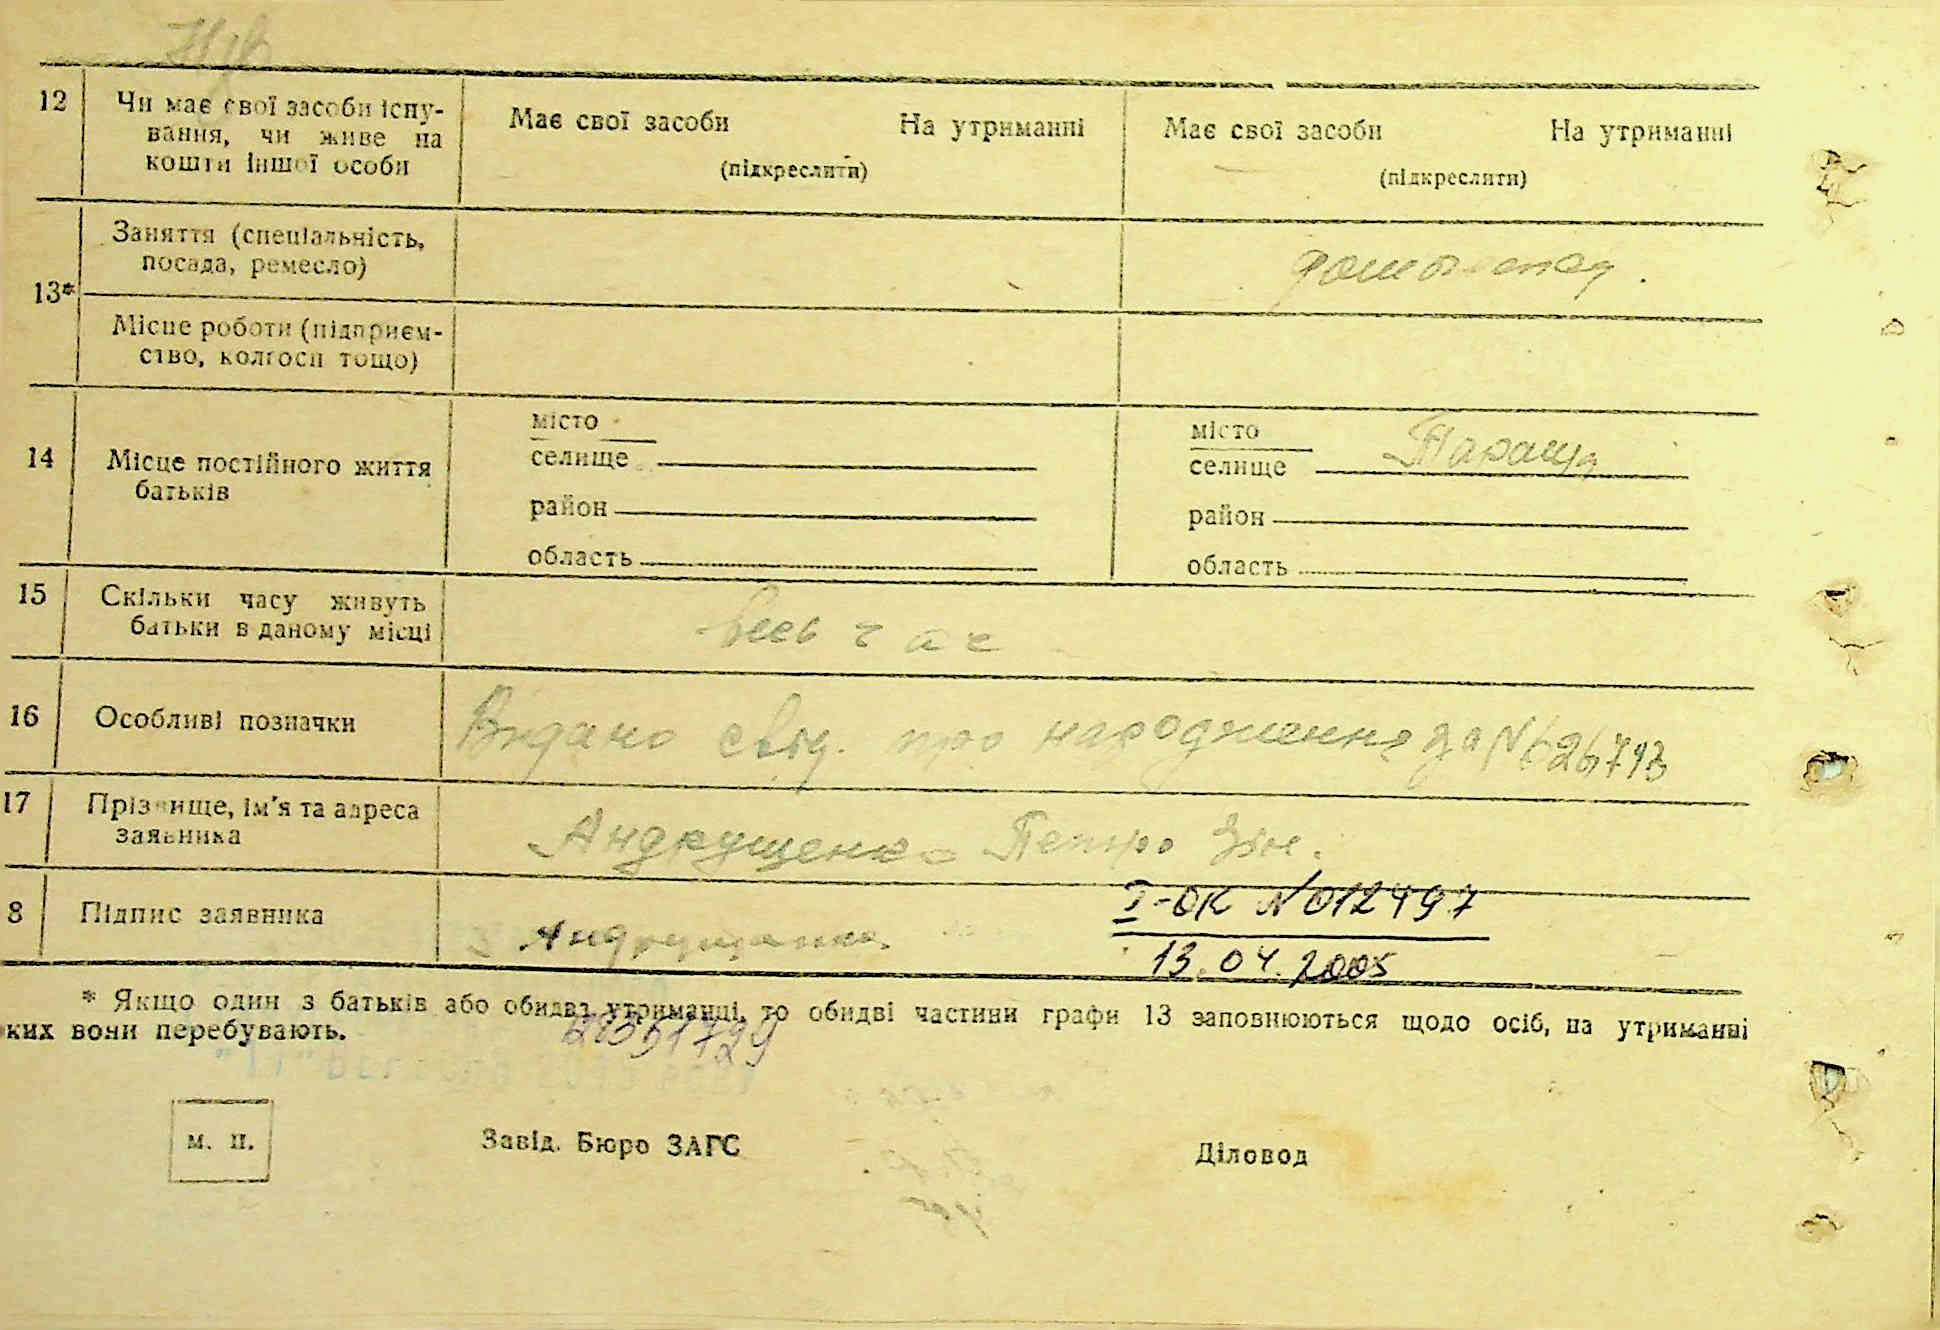 12 Чи має свої засоби існу-
вання, чи живе на
кошти іншої особи
Має свої засоби На утриманні
(підкреслити)
Має свої засоби На утриманні
(підкреслити)
13* Заняття (спеціальність,
посада, ремесло)
Місце роботи (підприєм-
ство, колгосп тощо)
14 Місце постійного життя
батьків
місто
селище
район
область
місто
селище Параща
район
область
15 Скільки часу живуть
батьки в даному місці
весь час
16 Особливі позначки
Видано свід. про народження за №626793
17 Прізвище, ім'я та адреса
заявника
Андрущенко Петро Зін.
8 Підпис заявника
Андрущенко.
I-ОК №012497
13.04.2005
* Якщо один з батьків або обидва утриманці, то обидві частини графи 13 заповнюються щодо осіб, на утриманні
ких вони перебувають.
м. п.
Завід. Бюро ЗАГС
Діловод